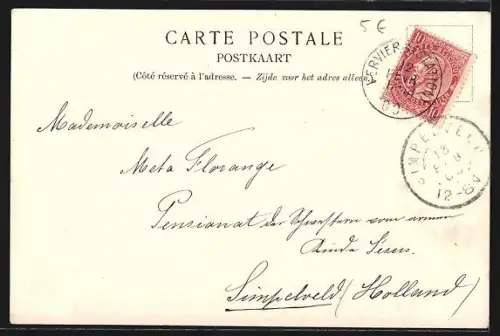 5 €
CARTE POSTALE
POSTKAART
(Côté réservé à l'adresse. — Zijde voor het adres alleen.)
VERVIERS
10 10
SIMPELVELD
12-8V
Mademoiselle
Meta Florange
Pensionat der Schwestern vom armen
Kinde Jesus.
Simpelveld (Holland)